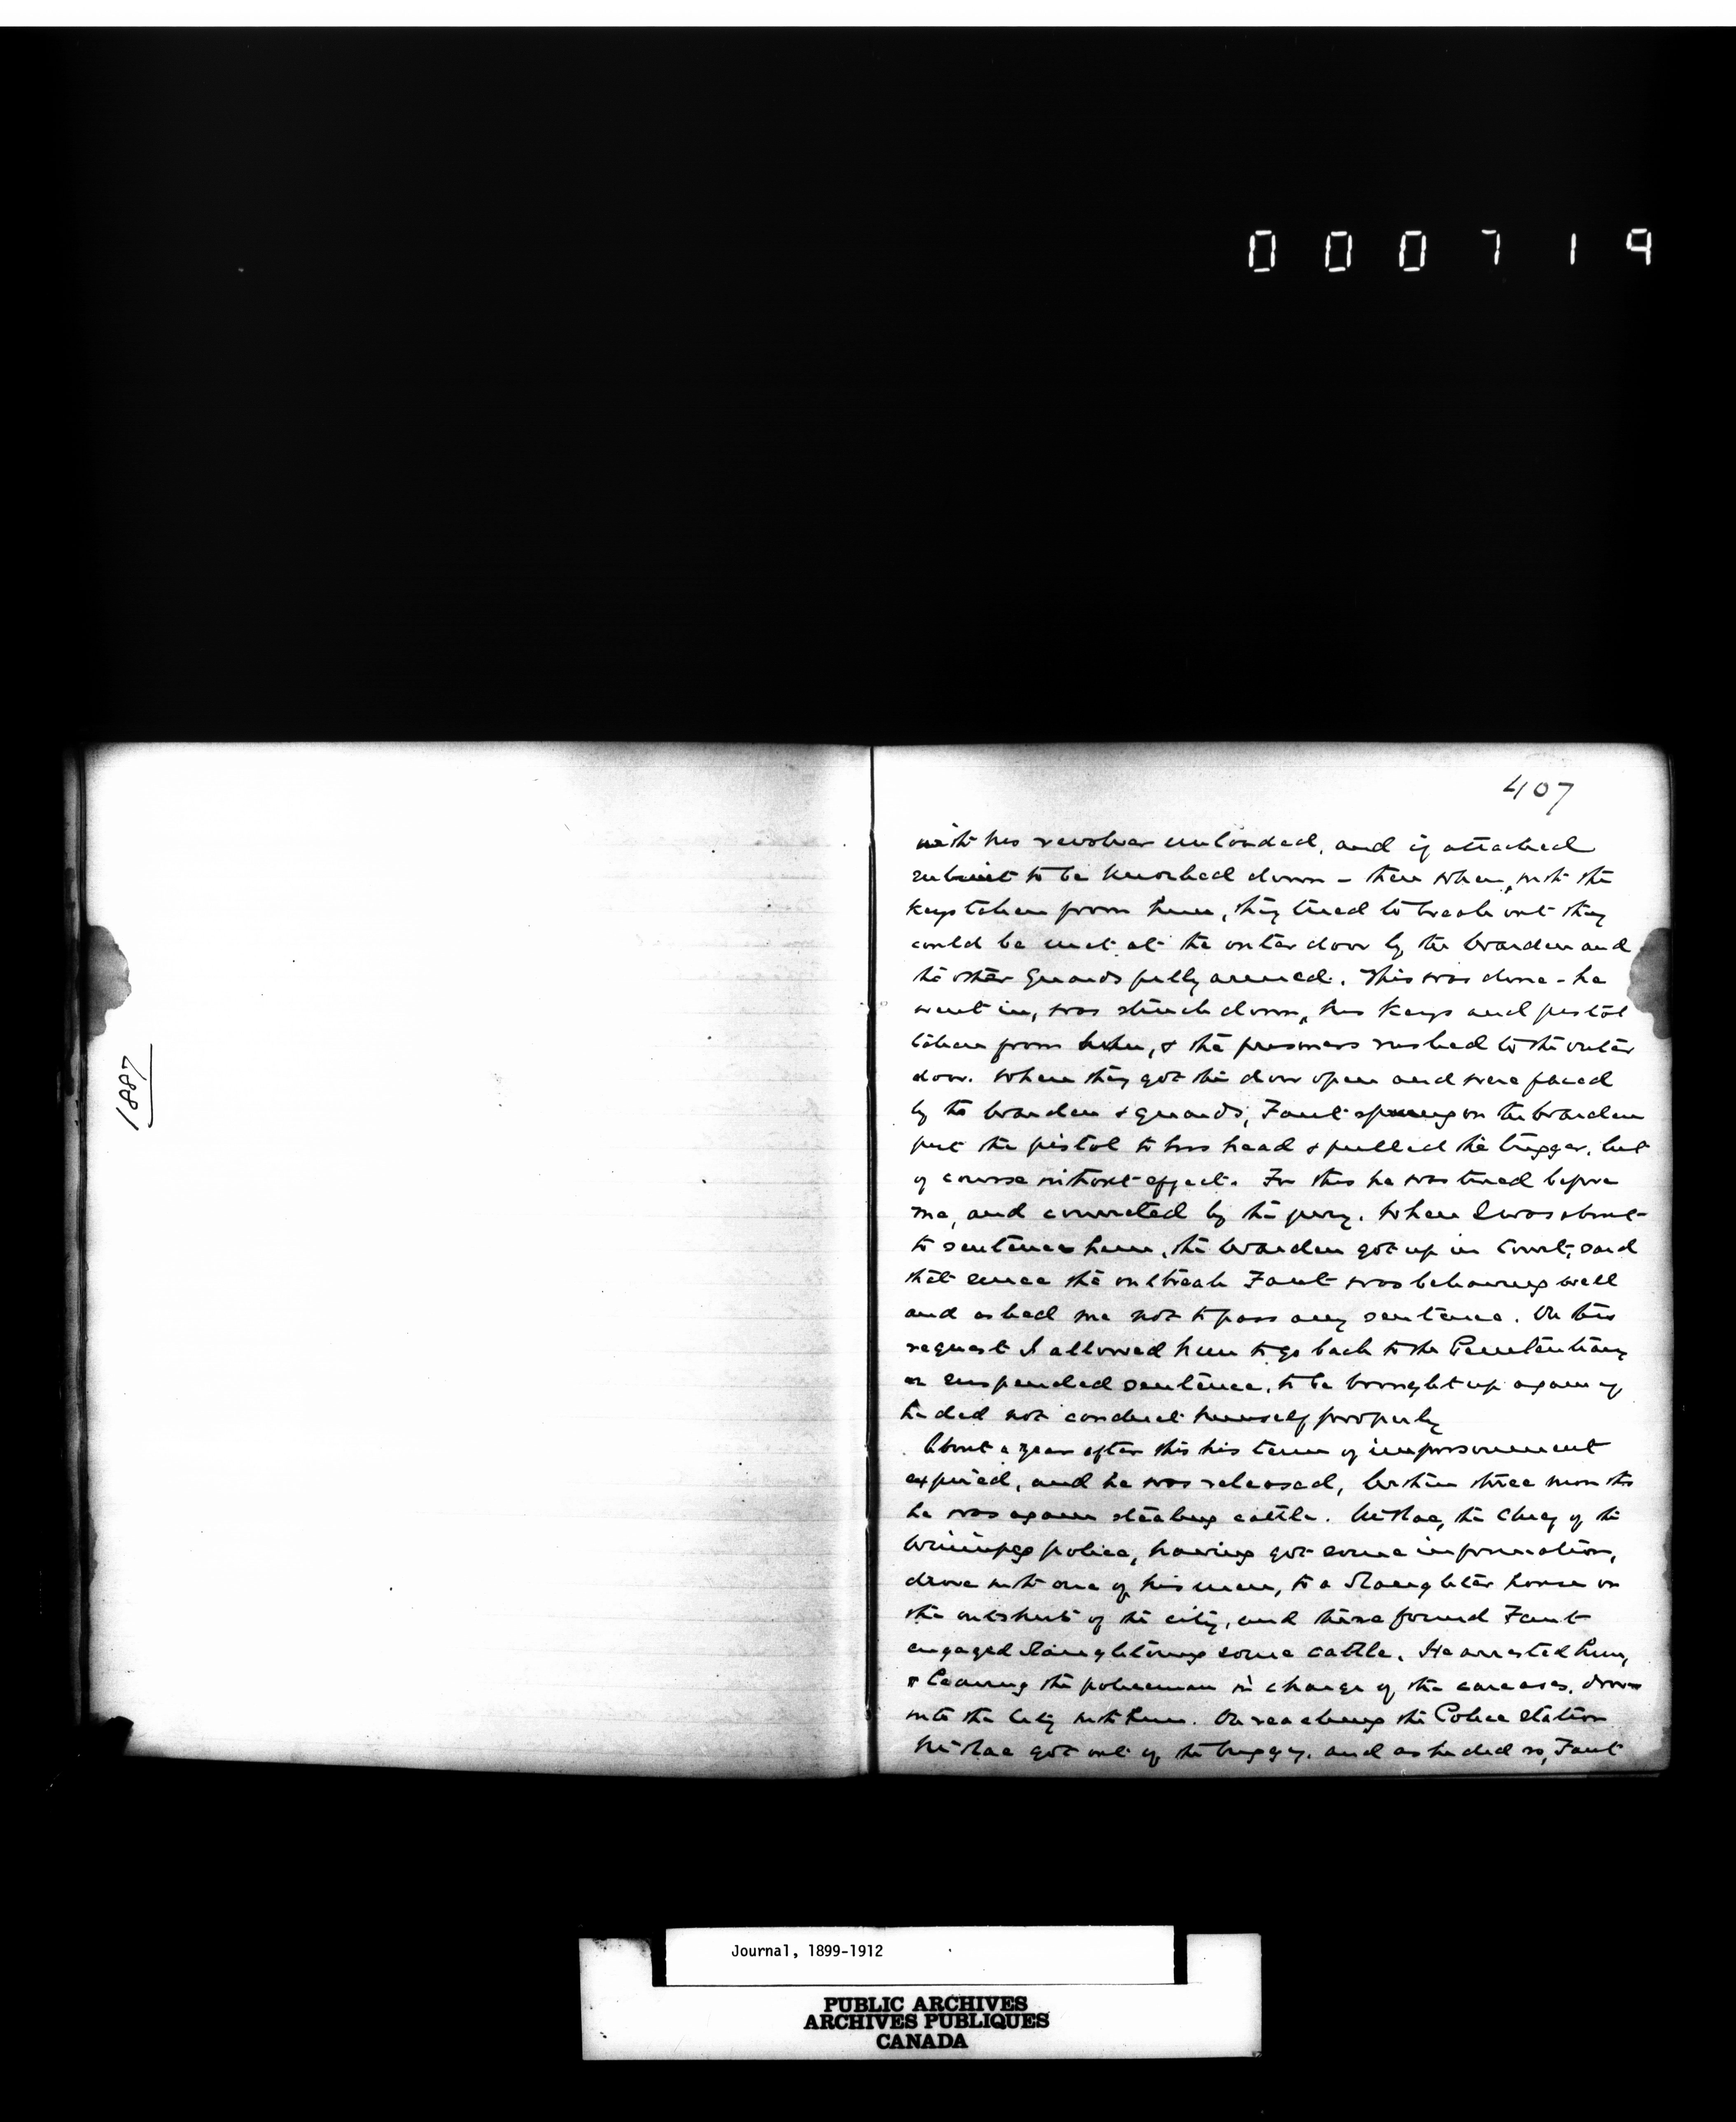 000719
1887
407
with his revolver unloaded, and if attacked
submit to be knocked down – then when, with the
keys taken from him, they tried to break out they
could be met at the outer door by the Warden and
the other Guards fully armed. This was done – he
went in, was struck down, his keys and pistol
taken from him, & the prisoners rushed to the outer
door. When they got the door open and were faced
by the Warden & guards, Fant sprung on the Warden
put the pistol to his head & pulled the trigger, but
of course without effect. For this he was tried before
me, and convicted by the jury. When I was about
to sentence him, the Warden got up in Court, said
that since the outbreak Fant was behaving well
and asked me not to pass any sentence. On this
request I allowed him to go back to the Penitentiary
on suspended sentence, to be brought up again if
he did not conduct himself properly
About a year after this his term of imprisonment
expired, and he was released, within three months
he was again stealing cattle. McRae, the Chief of the
Winnipeg police, having got some information,
drove with one of his men, to a Slaughter house on
the outskirts of the city, and there found Fant
engaged slaughtering some cattle. He arrested him,
& leaving the policeman in charge of the carcases, drove
into the City with him. On reaching the Police Station
McRae got out of the buggy, and as he did so, Fant
Journal, 1899-1912
PUBLIC ARCHIVES
ARCHIVES PUBLIQUES
CANADA